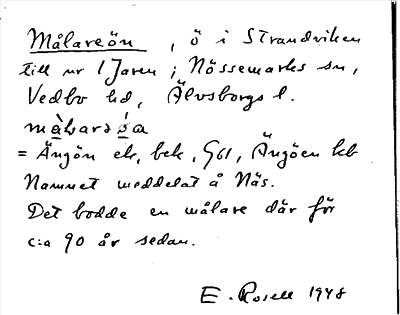 Målareön, ö i Strandviken
till nr 1 Jaren; Nössemarks sn,
Vedbo hd, Älvsborgs l.
= Ängön ek, bek, G61, Ängöen kb
Namnet meddelat å Näs.
Det bodde en målare där för
c:a 90 år sedan.
E. Rosell 1948